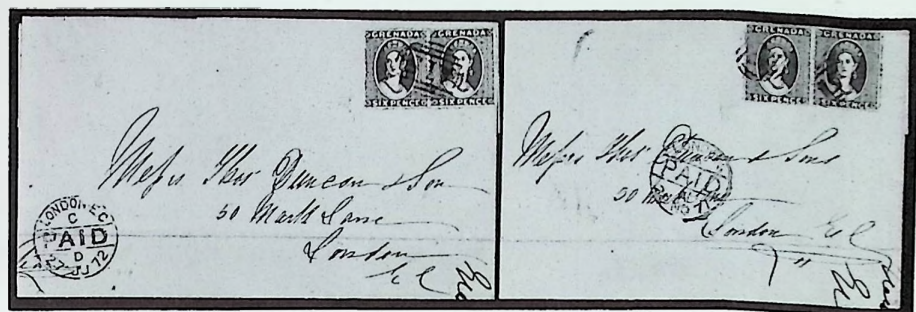 GRENADA GRENADA
SIX PENCE SIX PENCE
Messrs Thos Duncan & Son
50 Mark Lane
London
EC
LONDON E.C
C
PAID
D
27 JU 72
GRENADA GRENADA
SIX PENCE SIX PENCE
Messrs Thos Duncan & Sons
50
London EC
PAID